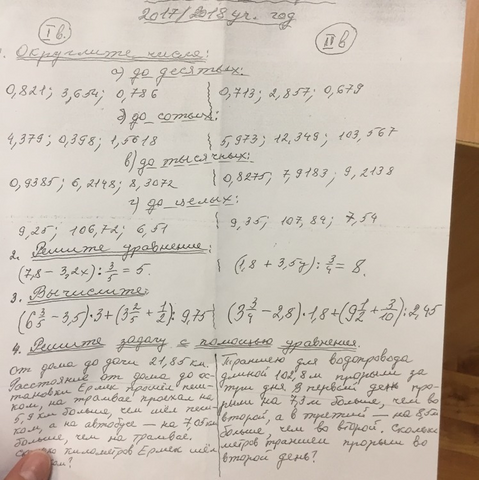 2017/2018 уч. год
I в.
II в
1. Округлите числа:
а) до десятых:
0,821; 3,654; 0,786
0,713; 2,857; 0,679
б) до сотых:
4,379; 0,398; 1,5618
5,973; 12,349; 103,567
в) до тысячных:
0,9385; 6,2148; 8,3072
0,8275, 7,9183; 9,2138
г) до целых
9,25; 106,72; 6,51
9,35; 107,84; 7,54
2. Решите уравнение:
(7,8 - 3,2x) : 3/5 = 5.
(1,8 + 3,5y) : 3/4 = 8.
3. Вычислите:
(6 3/5 - 3,5) · 3 + (3 2/5 + 1/2) : 9,75
(3 3/4 - 2,8) · 1,8 + (9 1/2 + 3/10) : 2,45
4. Решите задачу с помощью уравнения.
От дома до дачи 21,85 км.
Расстояние от дома до ос-
тановки Ермек прошёл пеш-
ком, на трамвае проехал на
5,9 км больше, чем шёл пеш-
ком, а на автобусе — на 7,05 км
больше, чем на трамвае.
километров Ермек шёл
Траншею для водопровода
длиной 102,8 м прорыли за
три дня. В первый день про-
рыли на 7,3 м больше, чем во
второй, а в третий — на 8,5 м
больше, чем во второй. Сколько
метров траншеи прорыли во
второй день?